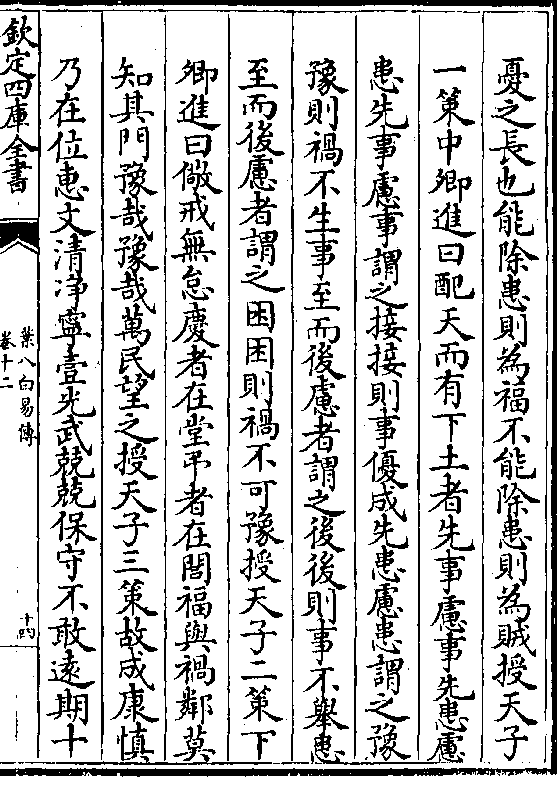 憂之長也能除患則為福不能除患則為賊授天子
一策中卿進曰配天而有下土者先事慮事先患慮
患先事慮事謂之接接則事優成先患慮患謂之豫
豫則禍不生事至而後慮者謂之後後則事不舉患
至而後慮者謂之困困則禍不可豫授天子二策下
卿進曰儆戒無怠慶者在堂弔者在閭福與禍鄰莫
知其門豫哉豫哉萬民望之授天子三策故成康慎
乃在位惠文清凈寧壹光武兢兢保守不敢遠期十
欽定四庫全書
葉八白易傳
卷十二
十四